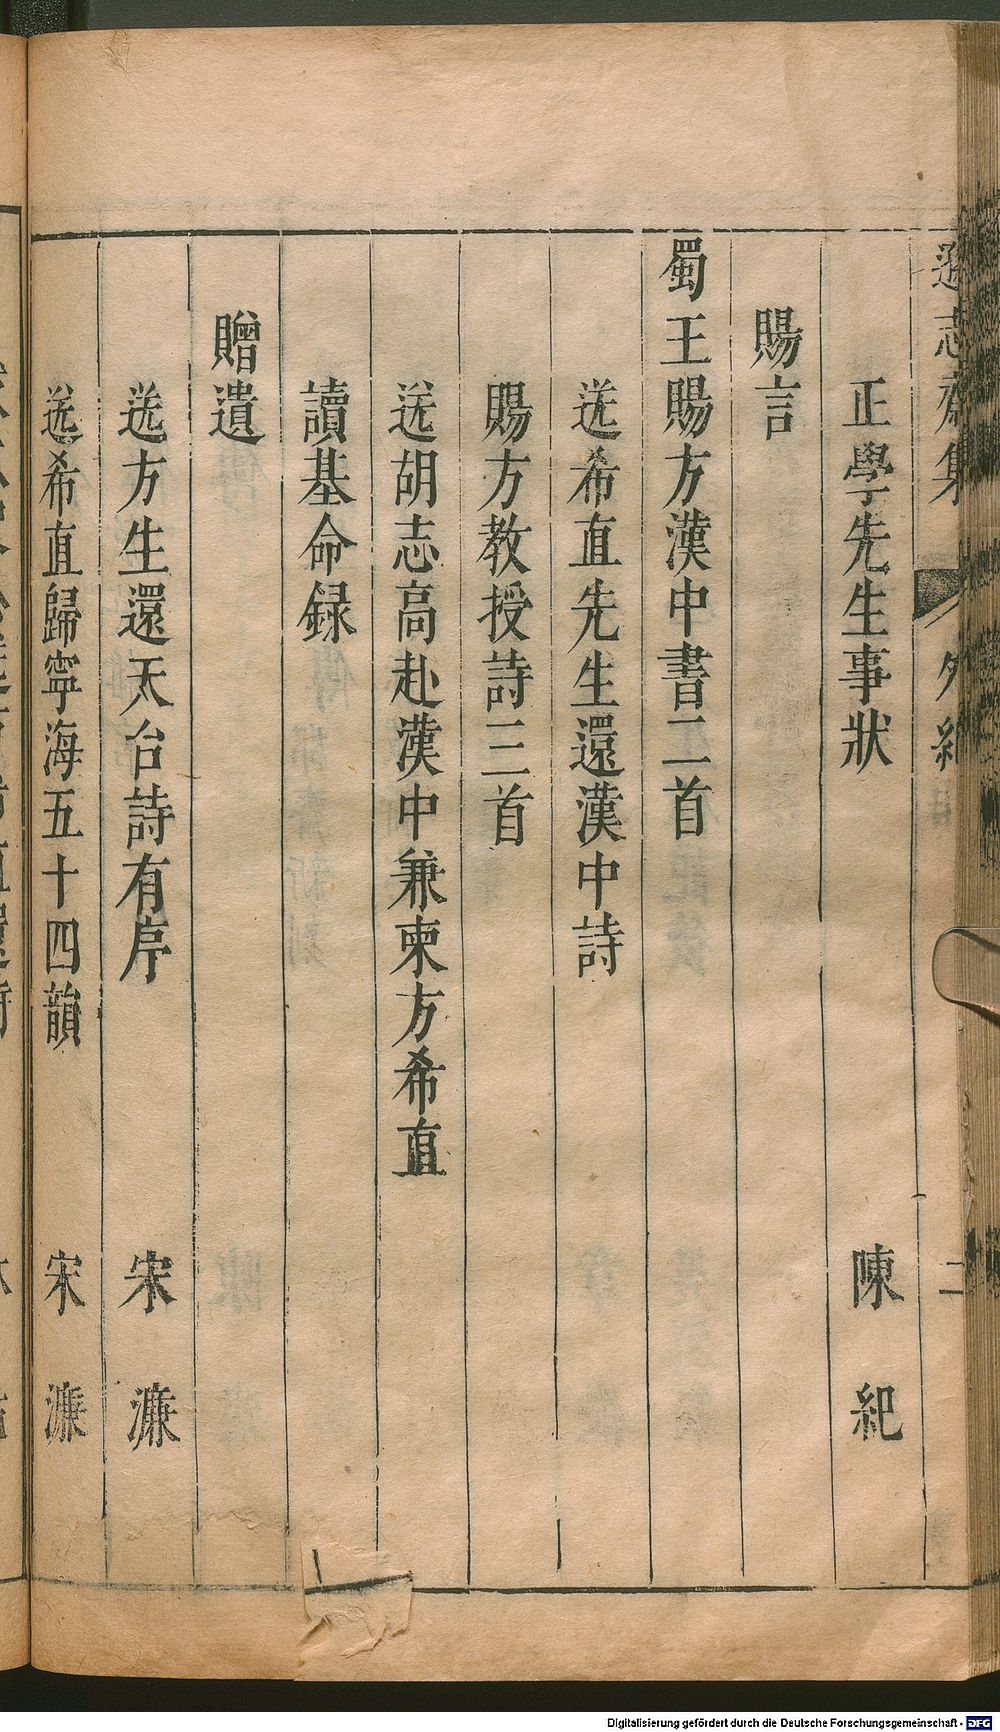 遜志齋集 外紀 二
正學先生事狀 陳紀
賜言
蜀王賜方漢中書二首
送希直先生還漢中詩
賜方教授詩三首
送胡志高赴漢中兼柬方希直
讀基命録
贈遺
送方生還天台詩有序 宋濂
送希直歸寧海五十四韻 宋濂
Digitalisierung gefördert durch die Deutsche Forschungsgemeinschaft - DFG